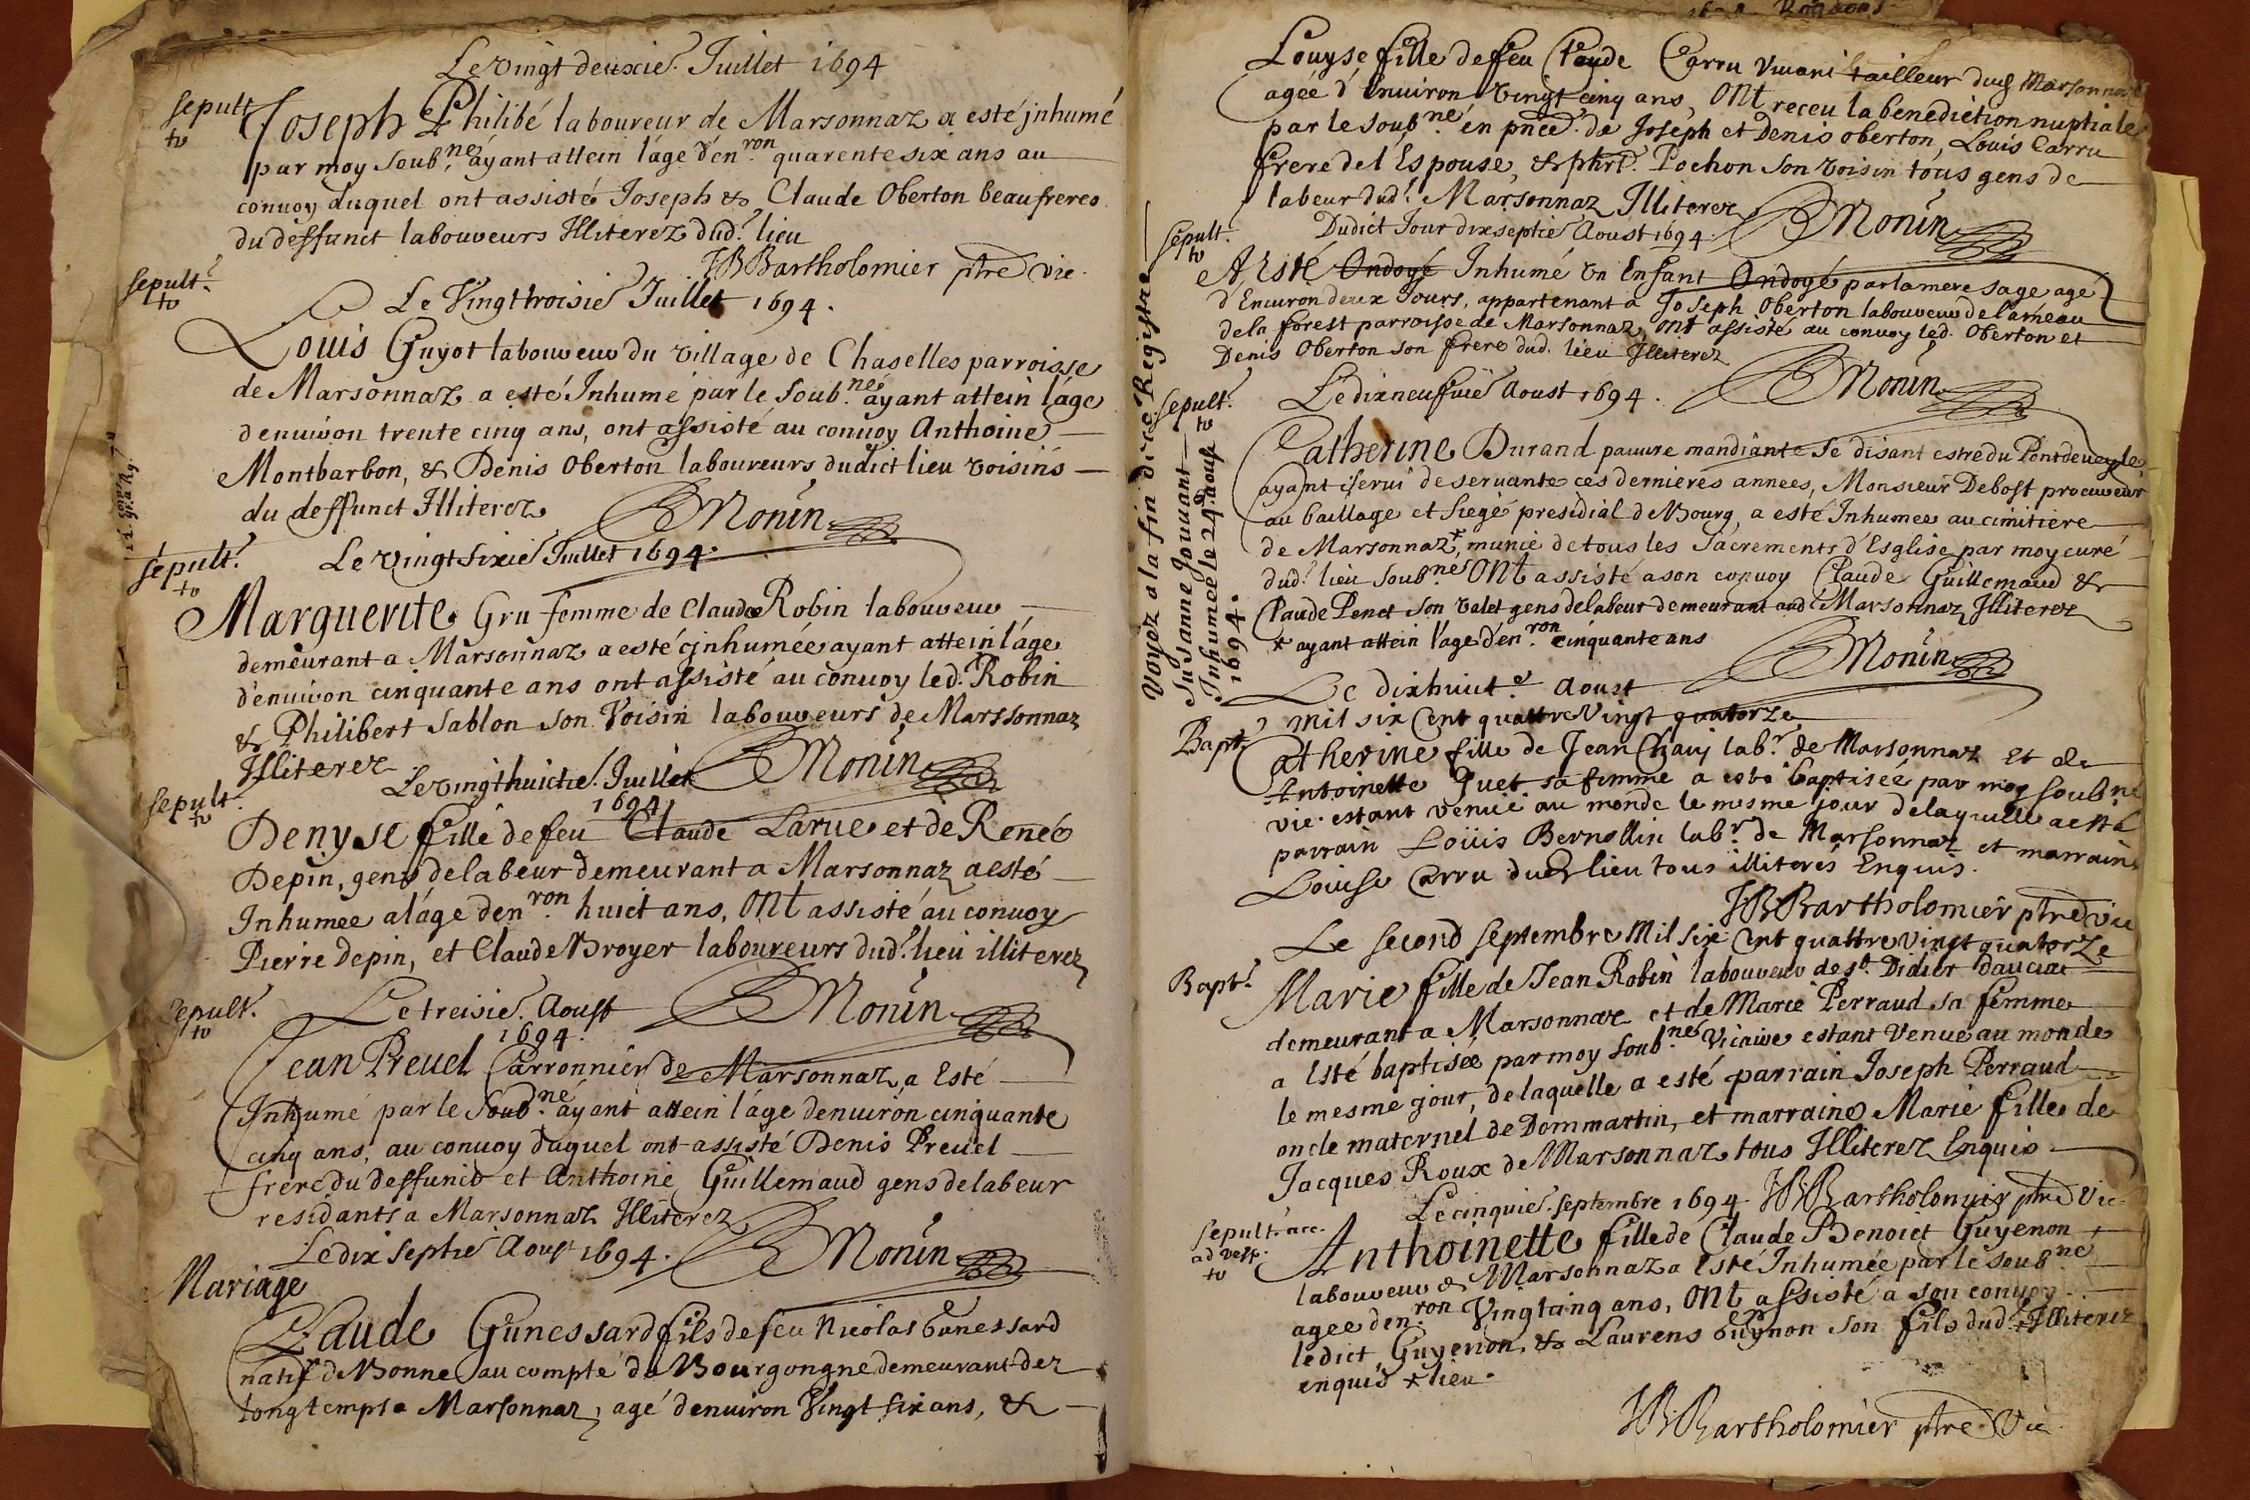 Le vingt deuxie. Juillet 1694
sepult.
to
Joseph Philibé laboureur de Marsonnaz a esté jnhumé
par moy soub.né ayant attein l'age d'en.ron quarente six ans au
conuoy duquel ont assisté Joseph & Claude Oberton beaufreres
du deffunct laboureurs Illiterez dud.t lieu
JB Bartholomier ptre vic.
sepult.e
to
Le Vingt troisie Juillet 1694.
Louis Guyot laboureur du village de Chaselles parroisse
de Marsonnaz a esté Inhumé par le soub.né ayant attein l'age
d'enuiron trente cinq ans, ont assisté au conuoy Anthoine
Montbarbon, & Denis Oberton laboureurs dudict lieu voisins
du deffunct Illiterez Monin
sepult.e
to
Le vingt sixie Juillet 1694.
Marguerite Gru femme de Claude Robin laboureur
demeurant a Marsonnaz a esté jnhumée ayant attein l'age
d'enuiron cinquante ans ont assisté au conuoy led. Robin
& Philibert Sablon son Voisin laboureurs de Marssonnaz
Illiterez Monin
Le vingt huictie. Juillet
1694
sepult.
to
Denyse fille de feu Claude Larue et de Renée
Depin, gens de labeur demeurant a Marsonnaz a esté
Inhumee a l'age d'en.ron huict ans, Ont assisté au conuoy
Pierre Depin, et Claude Broyer laboureurs dud.t lieu illiterez
Le treisie. Aoust Monin
1694.
sepult.e
to
Jean Preuel Carronnier de Marsonnaz, a Esté
Inhumé par le Soub.né ayant attein l'age d'enuiron cinquante
cinq ans, au conuoy duquel ont assisté Denis Preuel
frere du deffunct et Anthoine Guillemaud gens de labeur
residants a Marsonnaz Illiterez
Le dix septie Aoust 1694. Monin
Mariage
Claude Gunessard fils de feu Nicolas Gunessard
natif de Bonne au compté de Bourgongne demeurant dez
longtemps a Marsonnaz, agé d'enuiron Vingt six ans, &
Louyse fille de feu Claude Carru Viuant tailleur dud Marsonnaz
agée d'Enuiron vingt cinq ans, Ont receu la benediction nuptiale
par le soub.né en pnce. de Joseph et Denis Oberton, Louis Carru
frere de l'Espouse, & phrt. Pochon son voisin tous gens de
labeur dud.t Marsonnaz Illiterez Monin
Dudict Jour dix septie Aoust 1694.
sepult.
to
A Esté Ondoyé Inhumé un Enfant Ondoyé par la mere sage agé
d'Enuiron deux Jours, appartenant a Joseph Oberton laboureur de lameau
de la forest parroisse de Marsonnaz, ont assisté au conuoy led. Oberton et
Denis Oberton son frere dud. lieu Illiterez
Le dixneufuie Aoust 1694. Monin
sepult.e
to
Catherine Durand pauure mandiante se disant estre du Pontdeueyle
ayant serui de seruante ces dernieres annees, Monsieur Debost procureur
au baillage et siegé presidial de Bourg, a esté Inhumee au cimitiere
de Marsonnaz*, munie de tous les Sacrements d'Esglise par moy curé
dud.t lieu soub.né Ont assisté a son conuoy Claude Guillemaud &
Claude Penet son valet gens de labeur demeurant aud. Marsonnaz Illiterez
* ayant attein l'age d'en.ron cinquante ans Monin
Voyez a la fin du ce Registre
Susanne Jouuant
Inhumée le 24.e aoust
1694.
Le dixhuict.e Aoust
mil six Cent quattre Vingt quatorze
Bapt.
Catherine fille de Jean Chauj lab.r de Marsonnaz et de
Antoinette Guet sa femme a esté baptisée par moy soub.né
vic. estant venüe au monde le mesme jour de laquelle a esté
parrain Loüis Bernollin lab.r de Marsonnaz et marraine
Louise Carru dud lieu tous illiterés Enquis.
JB Bartholomier ptre vic
Le second septembre Mil six Cent quattre vingt quatorze
Bapt.e
Marie fille de Jean Robin laboureur de st. Didier d'auciat
demeurant a Marsonnaz et de Marie Perraud sa femme
a Esté baptisée par moy soub.né Vicaire estant Venue au monde
le mesme jour, de laquelle a esté parrain Joseph Perraud
oncle maternel de Dommartin, et marraine Marie fille de
Jacques Roux de Marsonnaz tous Illiterez Enquis
Le cinquie. septembre 1694. JB Bartholomier ptre Vic.
sepult. acc.
ad vesp.
to
Anthoinette fille de Claude Benoict Guyenon
laboureur de Marsonnaz a Esté Inhumée par le soub.né
agee d'en.ron Vingt cinq ans, Ont assisté a son conuoy
ledict Guyenon, & Laurens Guynon son fils dud.t *Illiterez
enquis * lieu.
JB Bartholomier ptre. Vic